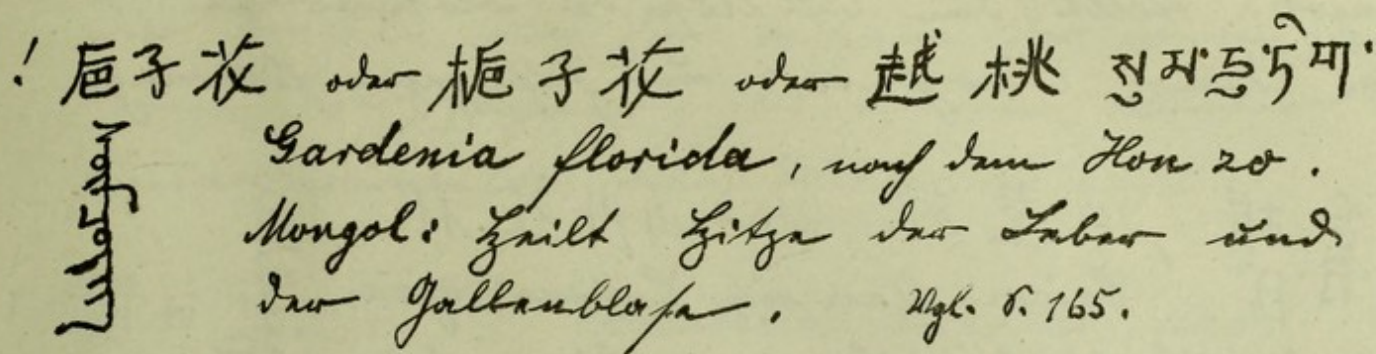 ! 巵子花 oder 梔子花 oder 越桃
Gardenia florida, nach dem Hon zo.
Mongol: heilt Hitze der Leber und
der Gallenblase. Vgl. S. 165.